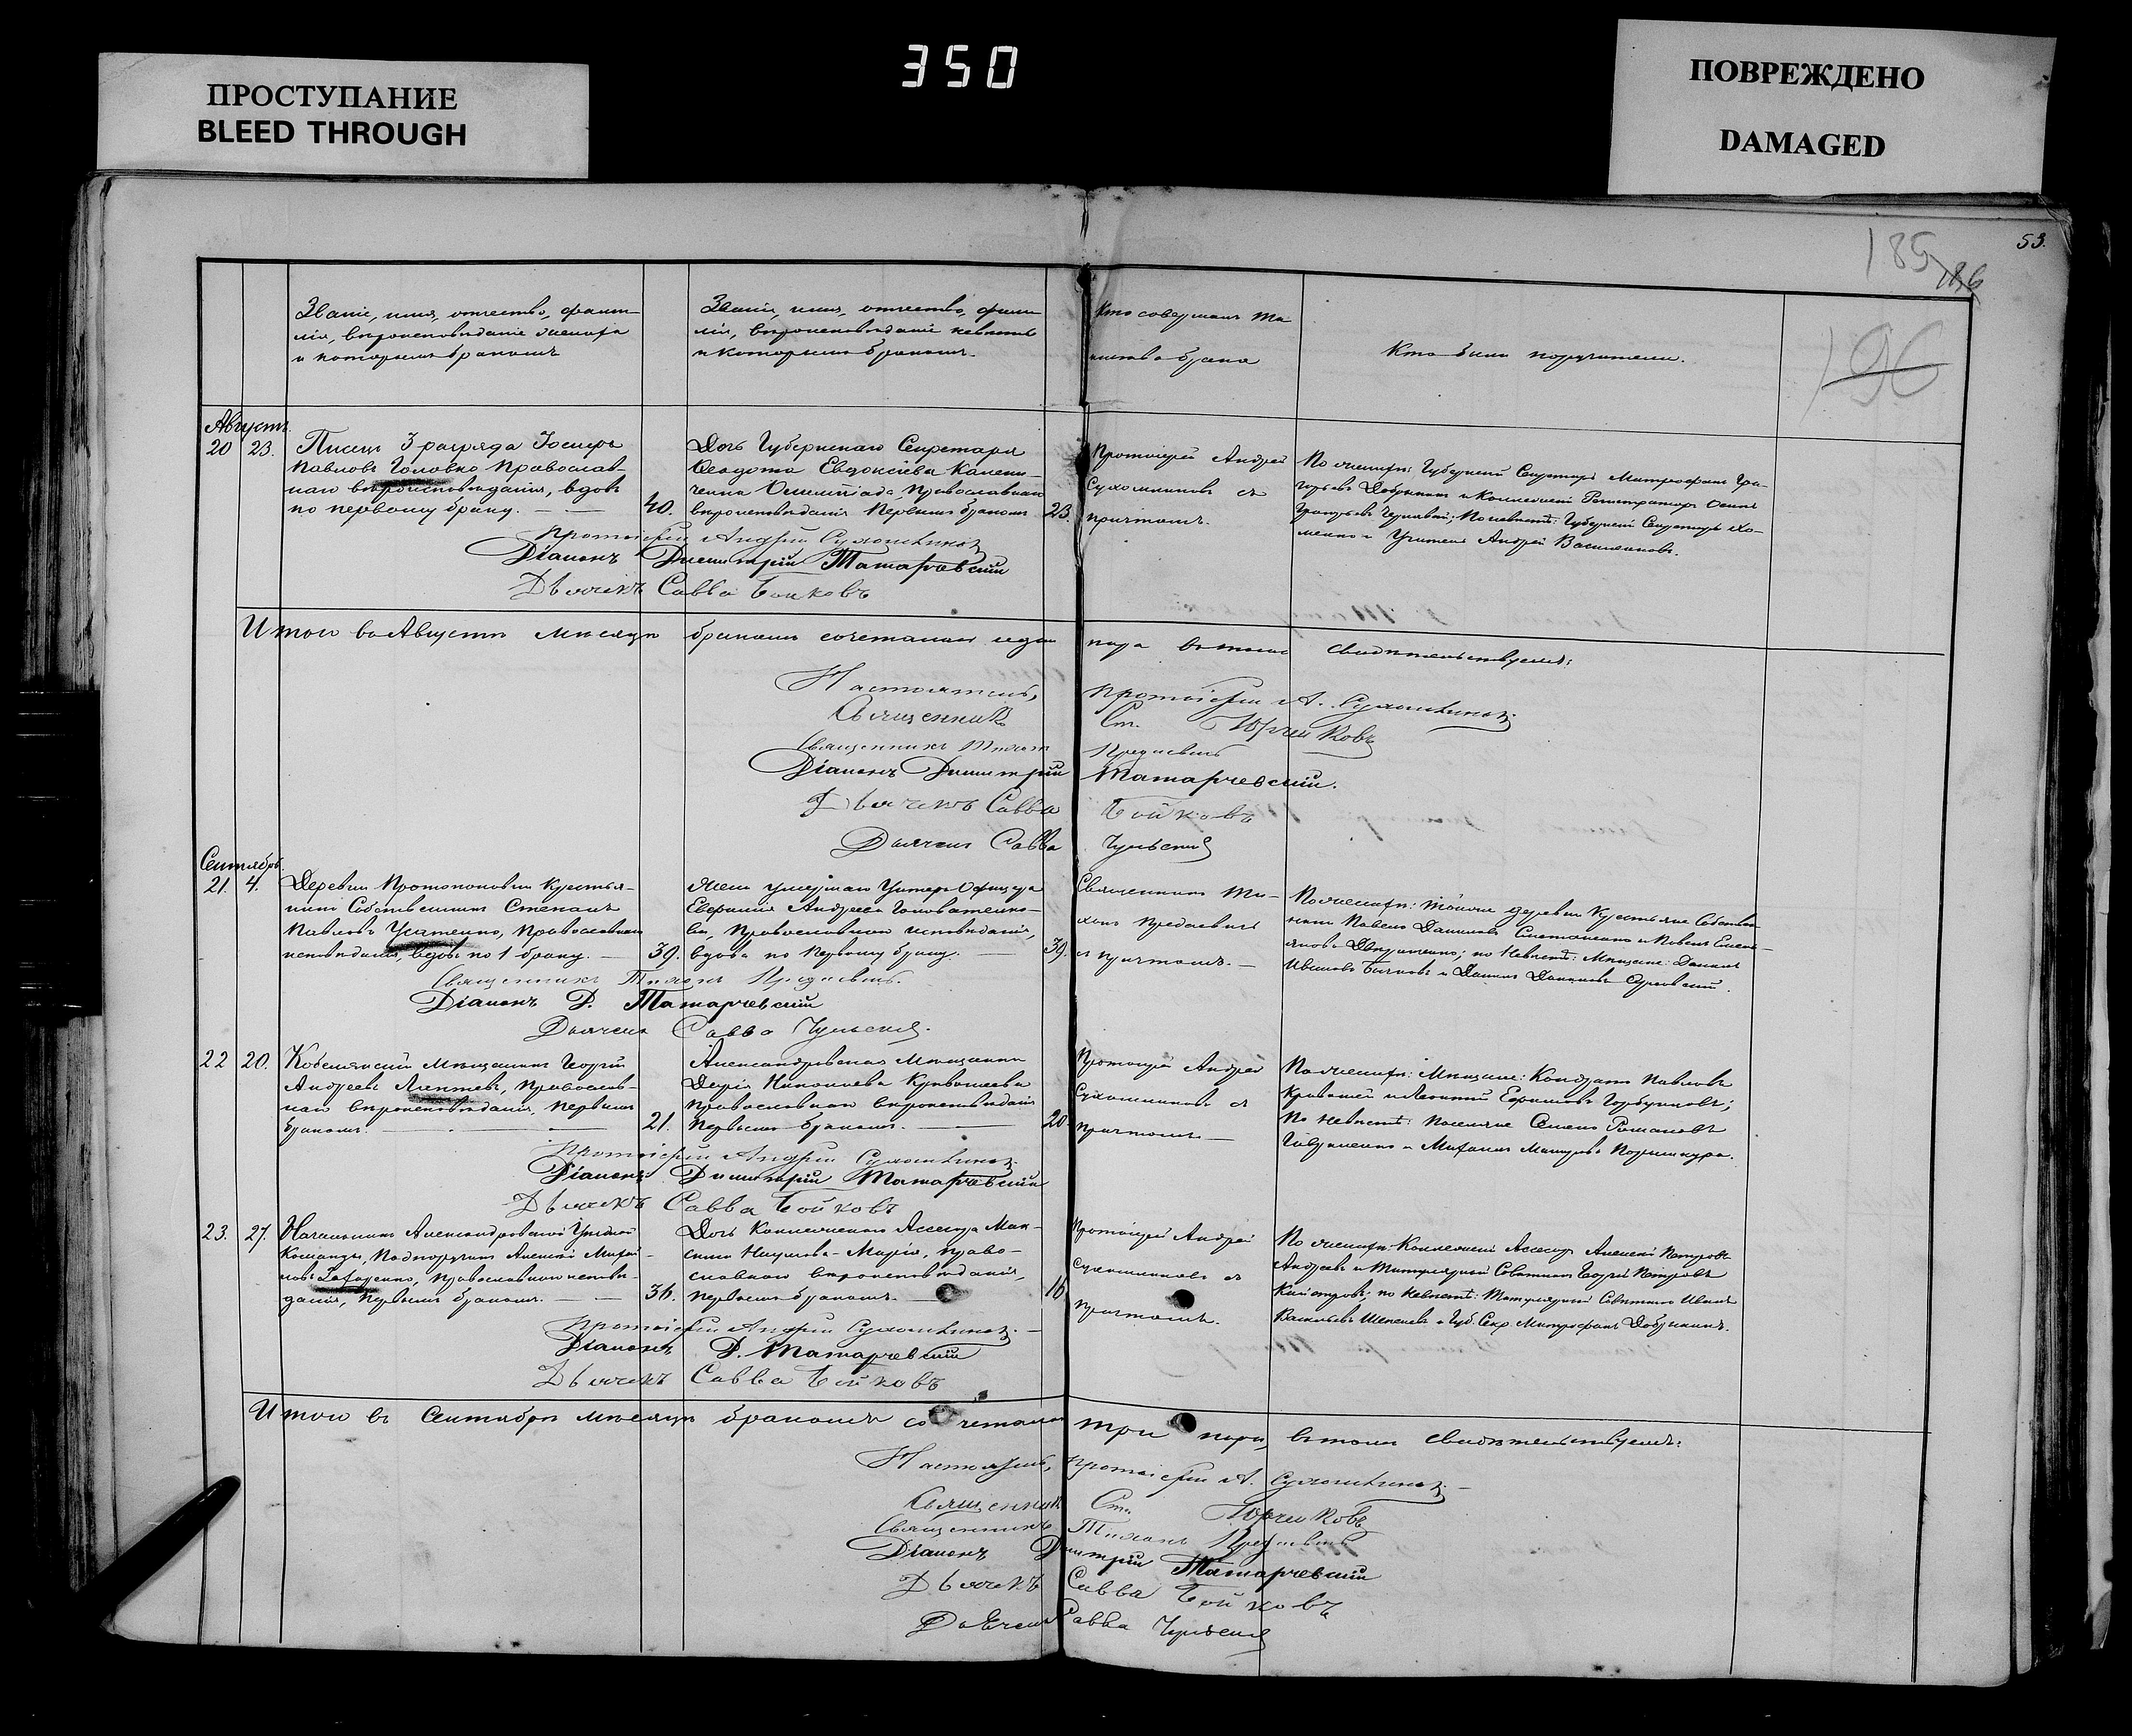 350
ПРОСТУПАНИЕ
BLEED THROUGH
ПОВРЕЖДЕНО
DAMAGED
53.
185
186
196
Званіе, имя, отчество, фами-
лія, вѣроисповѣданіе жениха
и которымъ бракомъ
Званіе, имя, отчество, фами-
лія, вѣроисповѣданіе невѣсты
и которымъ бракомъ.
Кто совершалъ та
инство брака
Кто были поручители.
Августъ
20 23.
Писецъ 3 разряда Іосифъ
Павловъ Головко Православ-
наго вѣроисповѣданія, вдовъ
по первому браку.
40.
Дочь Губернскаго Секретаря
Ѳеодота Евдокіева
Православнаго
вѣроисповѣданія Первымъ бракомъ
23.
Протоіерей Андрей
Сухомлиновъ съ
причтомъ.
По женихѣ: Губернскій Секретарь Митрофанъ Гри-
горьевъ Добрынинъ и Коллежскій Регистраторъ Осипъ
По невѣстѣ: Губернскій Секретарь
и Учитель Андрей Васильевъ
Протоіерей Андрей Сухомлиновъ
Діаконъ Димитрій Татарчевскій
Дьячекъ Савва Бойковъ
Итого въ Августѣ мѣсяцѣ бракомъ сочеталась одна пара въ томъ свидѣтельствуемъ:
Настоятель, Протоіерей А. Сухомлиновъ
Священникъ Ст. Юрченковъ
Священникъ Тихонъ
Діаконъ Димитрій Татарчевскій.
Дьячекъ Савва Бойковъ
Дьячекъ Савва
Сентябрь
21. 4.
Деревни Протопоповки Крестья-
нинъ Собственникъ Степанъ
Павловъ Усатенко, Православнаго
исповѣданія, вдовъ по 1 браку.
39.
Жена умершаго Унтеръ Офицера
Евфимія Андреева Головатенко-
ва, Православнаго исповѣданія,
вдова по Первому браку.
39.
Священникъ Ти-
хонъ
съ причтомъ.
По женихѣ: Тойже деревни Крестьяне Собствен-
ники Павелъ Даниловъ и Павелъ Емель-
яновъ по Невѣстѣ: Мѣщане: Даніилъ
Ивановъ и Даніилъ Даниловъ
Священникъ Тихонъ
Діаконъ Д. Татарчевскій
Дьячекъ Савва
22 20.
Кобелякскій Мѣщанинъ Георгій
Андреевъ Лаптевъ, Православ-
наго вѣроисповѣданія, Первымъ
бракомъ.
21.
Александровская Мѣщанка
Дарія Николаева Кривошеева
Православнаго вѣроисповѣданія
Первымъ бракомъ.
20.
Протоіерей Андрей
Сухомлиновъ съ
Причтомъ
По женихѣ: Мѣщане: Кондратъ Павловъ
и Ефимовъ Горбуновъ;
По Невѣстѣ: Поселяне Семенъ Романовъ
Гавриленко и Михаилъ
Протоіерей Андрей Сухомлиновъ
Діаконъ Димитрій Татарчевскій
Дьячекъ Савва Бойковъ
23. 27.
Начальникъ Александровской Уѣздной
Команды, Подпоручикъ Алексѣй Михай-
ловъ Захаренко, Православнаго исповѣ-
данія, Первымъ бракомъ.
36.
Дочь Коллежскаго Ассесора Мак-
сима Наумова - Марія, Право-
славнаго вѣроисповѣданія,
Первымъ бракомъ.
16
Протоіерей Андрей
Сухомлиновъ съ
Причтомъ.
По женихѣ: Коллежскій Ассесоръ Алексѣй Петровъ
Андреевъ и Титулярный Совѣтникъ Георгій Петровъ
по Невѣстѣ: Титулярный Совѣтникъ Иванъ
Васильевъ и Губ. Секр. Митрофанъ Добрынинъ.
Протоіерей Андрей Сухомлиновъ.
Діаконъ Д. Татарчевскій
Дьячекъ Савва Бойковъ
Итого въ Сентябрѣ мѣсяцѣ бракомъ сочеталось три пары, въ томъ свидѣтельствуемъ:
Настоятель, Протоіерей А. Сухомлиновъ.
Священникъ Ст. Юрченковъ
Священникъ Тихонъ
Діаконъ Димитрій Татарчевскій
Дьячекъ Савва Бойковъ
Дьячекъ Савва